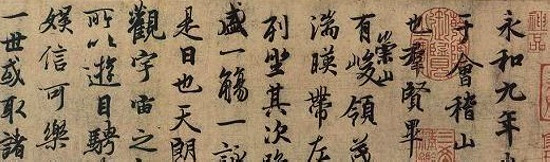 神品
永和九年
于會稽山
也羣賢畢
有崇山峻領茂
湍暎帶左
列坐其次
盛一觴一詠
是日也天朗
觀宇宙之
所以遊目騁
娛信可樂
一世或取諸